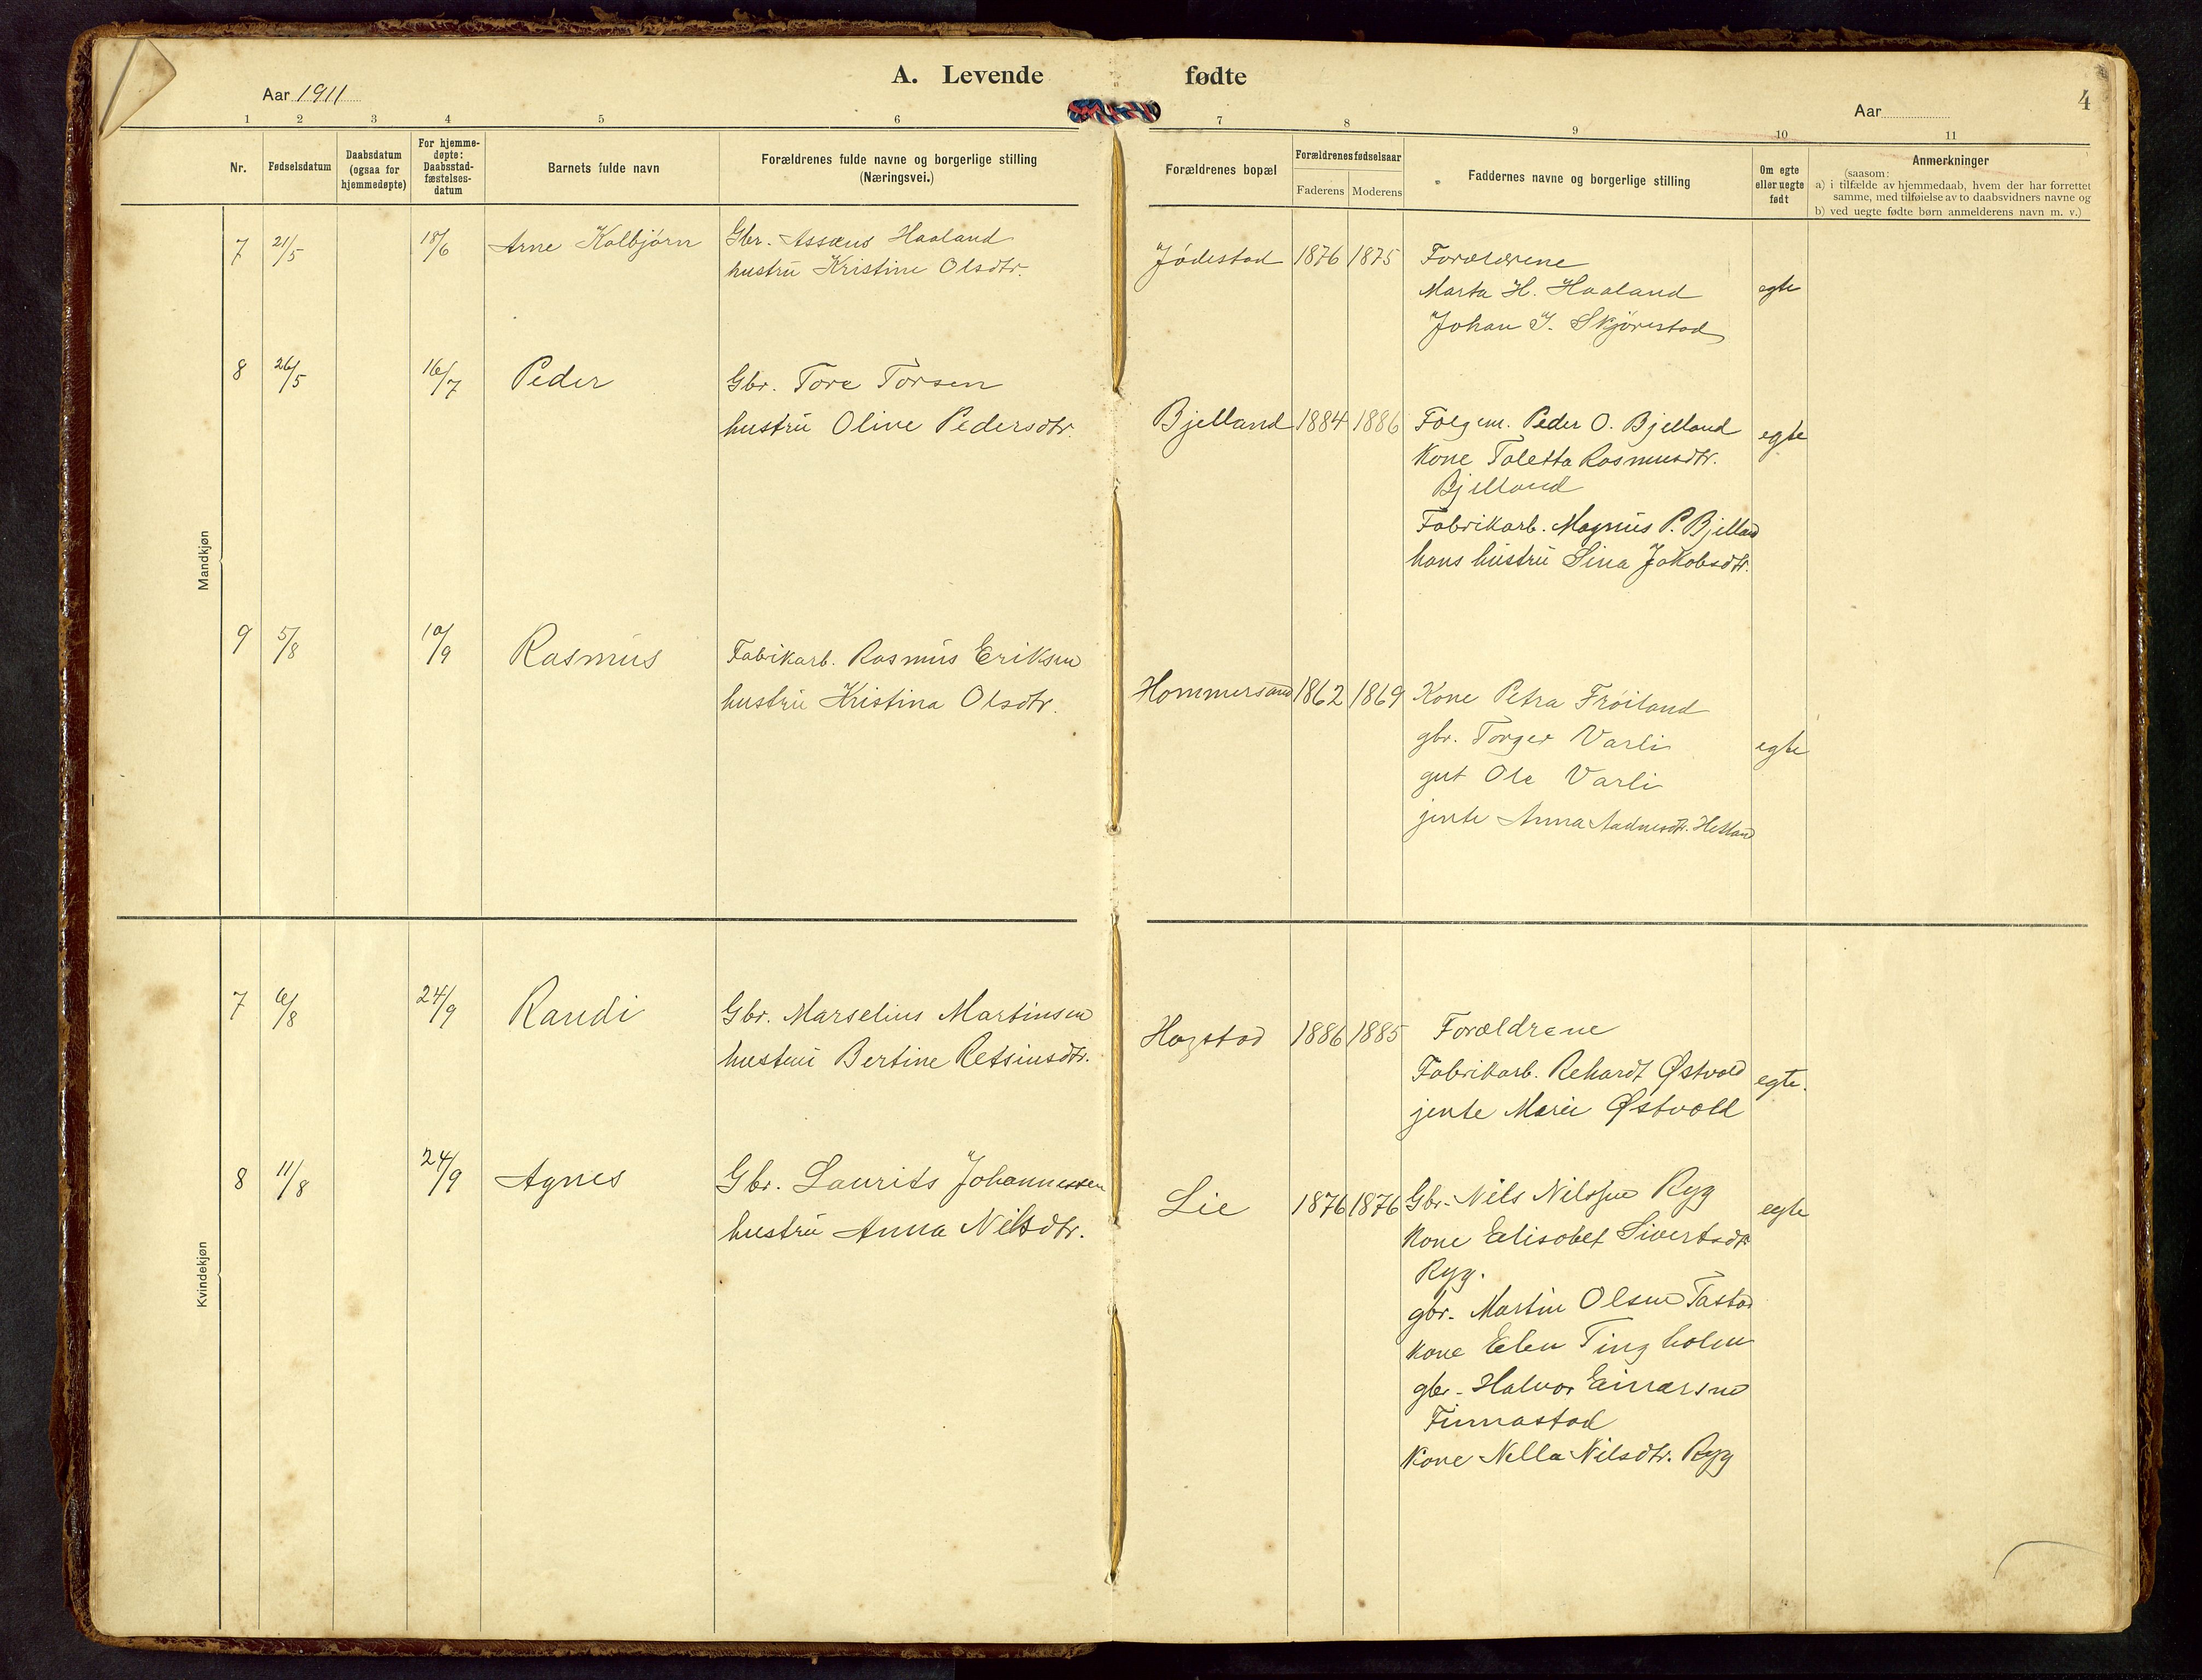 A. Levende fødte
Aar 1911
Aar
4
1 2 3 4 5 6 7 8 9 10 11
Nr.
Fødselsdatum
Daabsdatum
(ogsaa for
hjemmedøpte)
For hjemme-
døpte:
Daabsstad-
fæstelses-
datum
Barnets fulde navn
Forældrenes fulde navne og borgerlige stilling
(Næringsvei.)
Forældrenes bopæl
Forældrenes fødselsaar
Faderens Moderens
Faddernes navne og borgerlige stilling
Om egte
eller uegte
født
Anmerkninger
(saasom:
a) i tilfælde av hjemmedaab, hvem der har forrettet
samme, med tilføielse av to daabsvidners navne og
b) ved uegte fødte børn anmelderens navn m. v.)
Mandkjøn
7 21/5 18/6 Arne Kolbjørn
Gbr. Assæus Haaland
hustru Kristine Olsdtr.
Jødestad 1876 1875
Forældrene
Marta H. Haaland
Johan J. Skjørestad
egte
8 26/5 16/7 Peder
Gbr. Tore Torsen
hustru Olive Pedersdtr.
Bjelland 1884 1886
Følgem. Peder O. Bjelland
Kone Taletta Rasmusdtr.
Bjelland
Fabrikarb. Magnus P. Bjelland
hans hustru Sina Jakobsdtr.
egte
9 5/8 10/9 Rasmus
Fabikarb. Rasmus Eriksen
hustru Kristina Olsdtr.
Hommersand 1862 1869
Kone Petra Frøiland
gbr. Torger Varli
gut Ole Varli
jente Anna Aadnesdtr. Hetland
egte
Kvindekjøn
7 6/8 24/9 Randi
Gbr. Marselius Martinsen
hustru Bertine Retsiusdtr.
Hogstad 1886 1885
Forældrene
Fabrikarb. Rehardt Østvold
jente Marie Østvold
egte.
8 11/8 24/9 Agnes
Gbr. Laurits Johannessen
hustru Anna Nilsdtr.
Lie 1876 1876
Gbr. Nils Nilssen Ryg
Kone Elisabet Sivertsdtr
Ryg.
gbr. Martin Olsen Tastad
kone Elen Tingholm
gbr. Halvor Einarsen
Finnastad
Kone Nella Nilsdtr. Ryg
egte